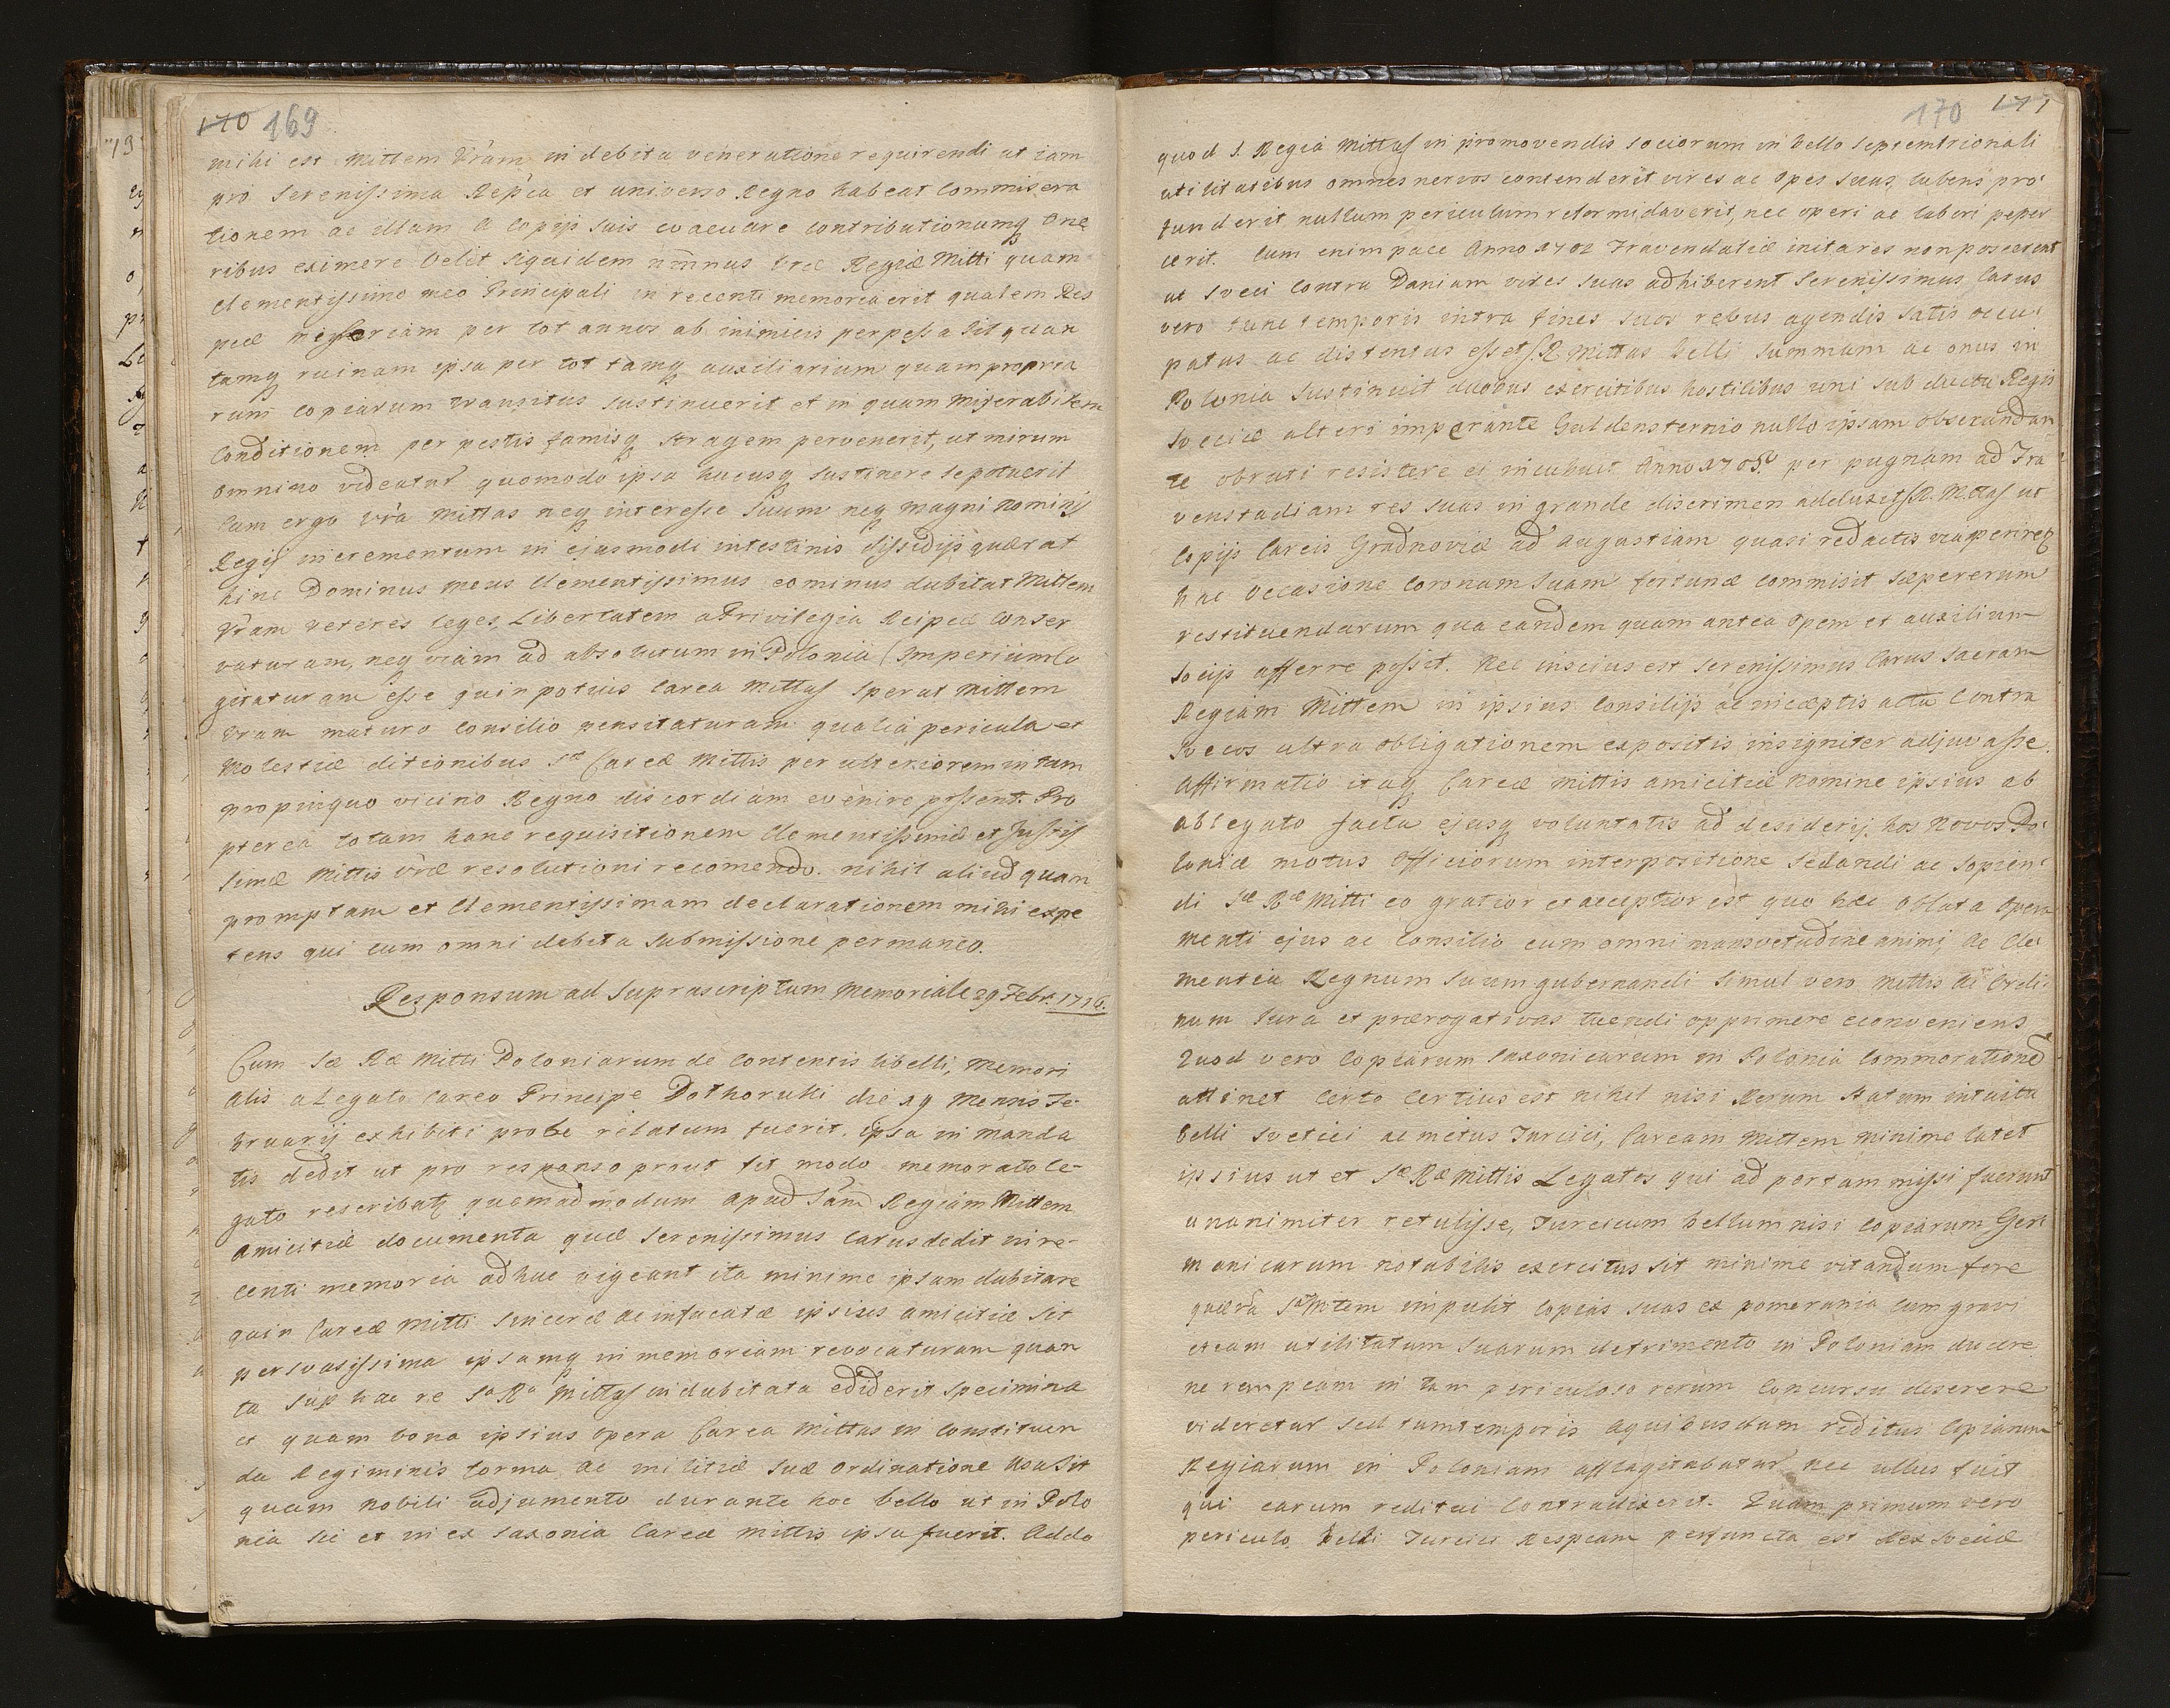 170 169
mihi est Mittem Vram in debita veneratione requirendi ut iam
pro Serenissima Repca et universo Regno habeat Commisera
tionem ac illam a Copijs suis evacuare contributionumq One
ribus eximere Velit siquidem Vræ Regiæ Mitti quam
clementissimo meo Principali in recenti memoria erit qualem Res
pcæ per tot annos ab inimicis perpessa sit quan
tamq ruinam ipsa per tot tamq auxiliarium quam propria
rum copiarum transitus sustinuerit et in quam miserabilem
Conditionem per pestis famisq stragem pervenerit, ut mirum
omnino videatur quomodo ipsa hucusq sustinere se potuerit
Cum ergo Vra Mittas neq interesse suum neq magni Nominis
Regij incrementum in ejusmodi intestinis dissidijs quærat
hinc Dominus meus Clementissimus eo minus dubitat Mittem
Vram veteres leges, Libertatem a Privilegia Reipcæ Conser
vaturam, neq viam ad absolutum in Polonia Imperium Co
gitaturam esse quin potius Carea Mittas sperat Mittem
Vram maturo consilio pensitaturam qualia pericula et
Molestiæ ditionibus Careæ Mittis per ulteriorem in tam
propinquo vicino Regno discordiam evenire possent. Pro
pterea totam hanc requisitionem Clementissimæ et Justis
simæ Mittis Vræ resolutioni recomendo. nihil aliud quam
promptam et Clementissimam declarationem mihi expe
tens qui cum omni debita submissione permaneo.
Responsum ad Suprascriptum Memoriale 29 Febr. 1716.
Cum Sæ Ræ Mitti Poloniarum de Contentis libelli, Memori
alis a Legato Careo Principe Dolhorukki die 29 Mensis Fe-
bruarij exhibiti probe relatum fuerit. ipsa in manda
tis dedit ut pro responso prout fit modo memorato le-
gato rescribatq quemadmodum apud Sam Regiam Mittem
amicitiæ documenta quæ Serenissimus Carus dedit in re-
centi memoria adhuc vigeant ita minime ipsam dubitare
quin Careæ Mitti sinceræ ac infucatæ ipsius amicitiæ sit
persvasissima ipsamq in memoriam revocaturam quan
ta sup hac re Sa Ra Mittas indubitata ediderit specimina
et quam bona ipsius opera Carea Mittas in constituen
da Regiminis forma ac militiæ suæ Ordinatione usa sit
quam nobili adjumento durante hoc bello ut in Polo
nia sic et in ex Saxonia Careæ Mittis ipsa fuerit. Addo
170 171
quod S. Regia Mittas in promovendis sociorum in bello septemtrionali
utilitatibus omnes nervos contenderit vires ac Opes suas, lubens pro-
funderit nullum periculum reformidaverit, nec operi ac labori peper
cerit. Cum enim pace Anno 1701 Travendatiæ inita res non poscerent
ut Sveci Contra Daniam vires suas adhiberent Serenissimus Carus
vero tunc temporis intra fines suos rebus agendis satis occu-
patus ac distentus esset S. R. Mittas belli summam ac onus in
Polonia sustinuit duobus exercitibus hostilibus uni sub ductu Regis
Sveciæ alteri imperante Guldensternio nullo ipsam obsecundan
te obruti resistere ei incubuit. Anno 1705to per pugnam ad Fra
venstadiam res suas in grande discrimen adduxit S. R. Mttas ut
Copijs Careis Grodnoviæ ad angustiam quasi redactis via periretq
hac Occasione Coronam suam fortunæ commisit sæpe rerum
restituendarum qua eandem quam antea Opem et auxilium
socijs afferre posset. Nec inscius est Serenissimus Carus Sacram
Regiam Mittem in ipsius Consilijs ac incæptis actu Contra
Svecos ultra obligationem expositis insigniter adjuvasse.
Affirmatio itaq Careæ Mittis amicitiæ Nomine ipsius ab
ablegato facta ejusq voluntatis ad desiderij hos novos Po-
loniæ motus Officiorum interpositione sedandi ac sopien-
di Sæ Ræ Mitti eo gratior et acceptior est quo hæc oblata Opera
menti ejus ac Consilio cum omni mansvetudine animi, ac Cle-
mentia Regnum suum gubernandi simul vero Mittis ac Ordi-
num Jura et prærogativas tuendi opprimere econveniens
Quod vero Copiarum Saxonicarum in Polonia Commorationem
attinet Certo Certius est nihil nisi Rerum statum intuitu
belli Svetici ac metus Turcici, Caream Mittem minime latet
ipsius ut et Sæ Ræ Mittis Legatos qui ad portam missi fuerunt
unanimiter retulisse, Turcicum bellum nisi Copiarum Ger
manicarum notabilis exercitus sit minime vitandum fore
quæ Mttem impulit Copias suas ex pomerania cum gravi
etiam utilitatum suarum detrimento in Poloniam ducere
ne rempcam in tam periculoso rerum Concursu deserere
videretur sed tumtemporis a quibusdam reditus Copiarum
Regiarum in Poloniam afflagitabatur nec ullus fuit
qui earum reditui Contradixerit. Quam primum vero
periculo belli Turcici Respcam perfuncta est Rex Sveciæ